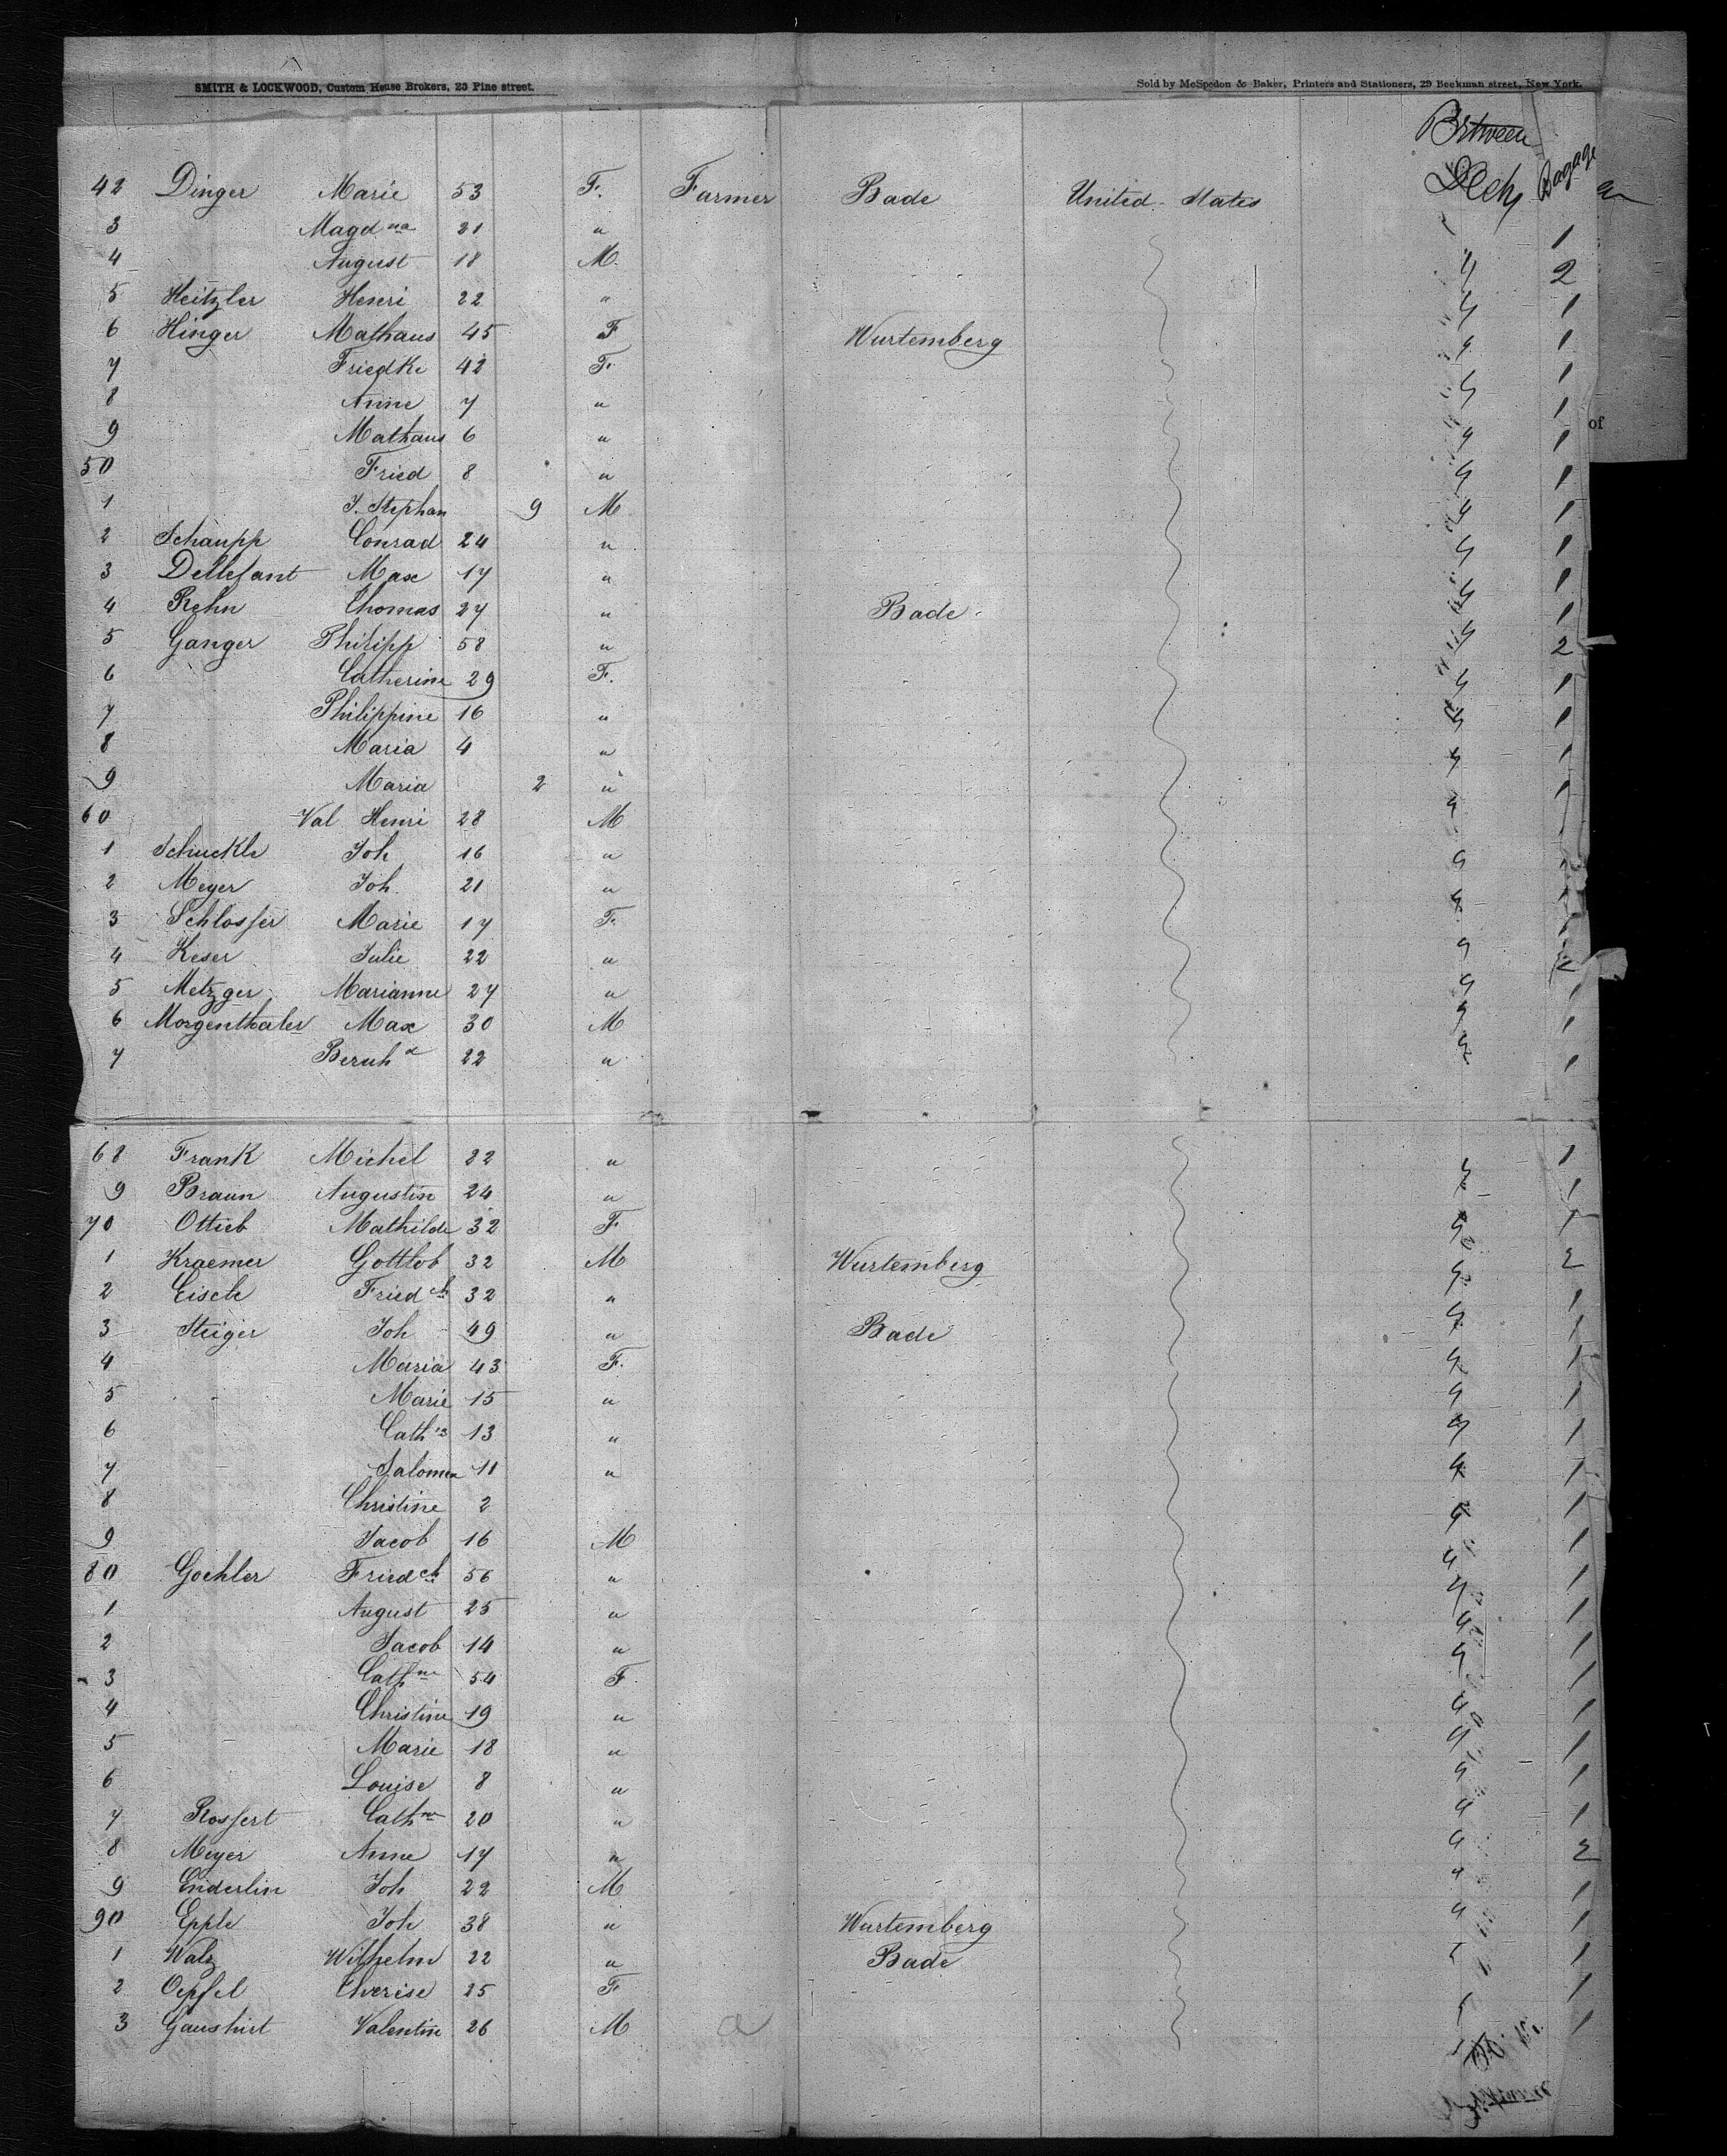 SMITH & LOCKWOOD, Custom House Brokers, 25 Pine street. Sold by McSpedon & Baker, Printers and Stationers, 29 Beekman street, New York.
Between
Deck Bagage
42 Dinger Marie 53 F. Farmer Bade United States
3 Magd na 21 " 1
4 August 18 M. " 2
5 Heitzler Henri 22 " " 1
6 Hinger Mathaus 45 F Wurtemberg " 1
7 Friedke 42 F. " 1
8 Anne 7 " " 1
9 Mathaus 6 " " 1
50 Fried 8 " " 1
1 J. Stephan 9 M " 1
2 Schaupp Conrad 24 " " 1
3 Dellefant Max 17 " " 1
4 Rehn Thomas 27 " Bade " 1
5 Ganger Philipp 58 " " 2
6 Catherine 29 F. " 1
7 Philippine 16 " " 1
8 Maria 4 " " 1
9 Maria 2 " " 1
60 Val Henri 28 M "
1 Schuckle Joh 16 " "
2 Meyer Joh. 21 " " 1
3 Schlosser Marie 17 F. "
4 Keser Julie 22 " "
5 Metzger Marianne 27 " " 1
6 Morgenthaler Max 30 M " 1
7 Bernh d 22 " " 1
68 Frank Michel 22 " " 1
9 Braun Augustin 24 " " 1
70 Ottieb Mathilde 32 F " 1
1 Kraemer Gottlob 32 M Wurtemberg " 2
2 Eisele Fried ch 32 " " 1
3 Steiger Joh 49 " Bade " 1
4 Maria 43 F. " 1
5 Marie 15 " " 1
6 Cath 13 " " 1
7 Salomea 11 " " 1
8 Christine 2 " 1
9 Jacob 16 M " 1
80 Goehler Fried ch 56 " " 1
1 August 25 " " 1
2 Jacob 14 " " 1
3 Cath ne 54 F " 1
4 Christine 19 " " 1
5 Marie 18 " " 1
6 Louise 8 " " 1
7 Rossert Cath ne 20 " " 1
8 Meyer Anne 17 " " 2
9 Enderlin Joh 22 M " 1
90 Epple Joh 38 " Wurtemberg " 1
1 Walz Wilhelm 22 " Bade 1
2 Oepfel Therise 25 F 1
3 Gaushirt Valentin 26 M 1
of